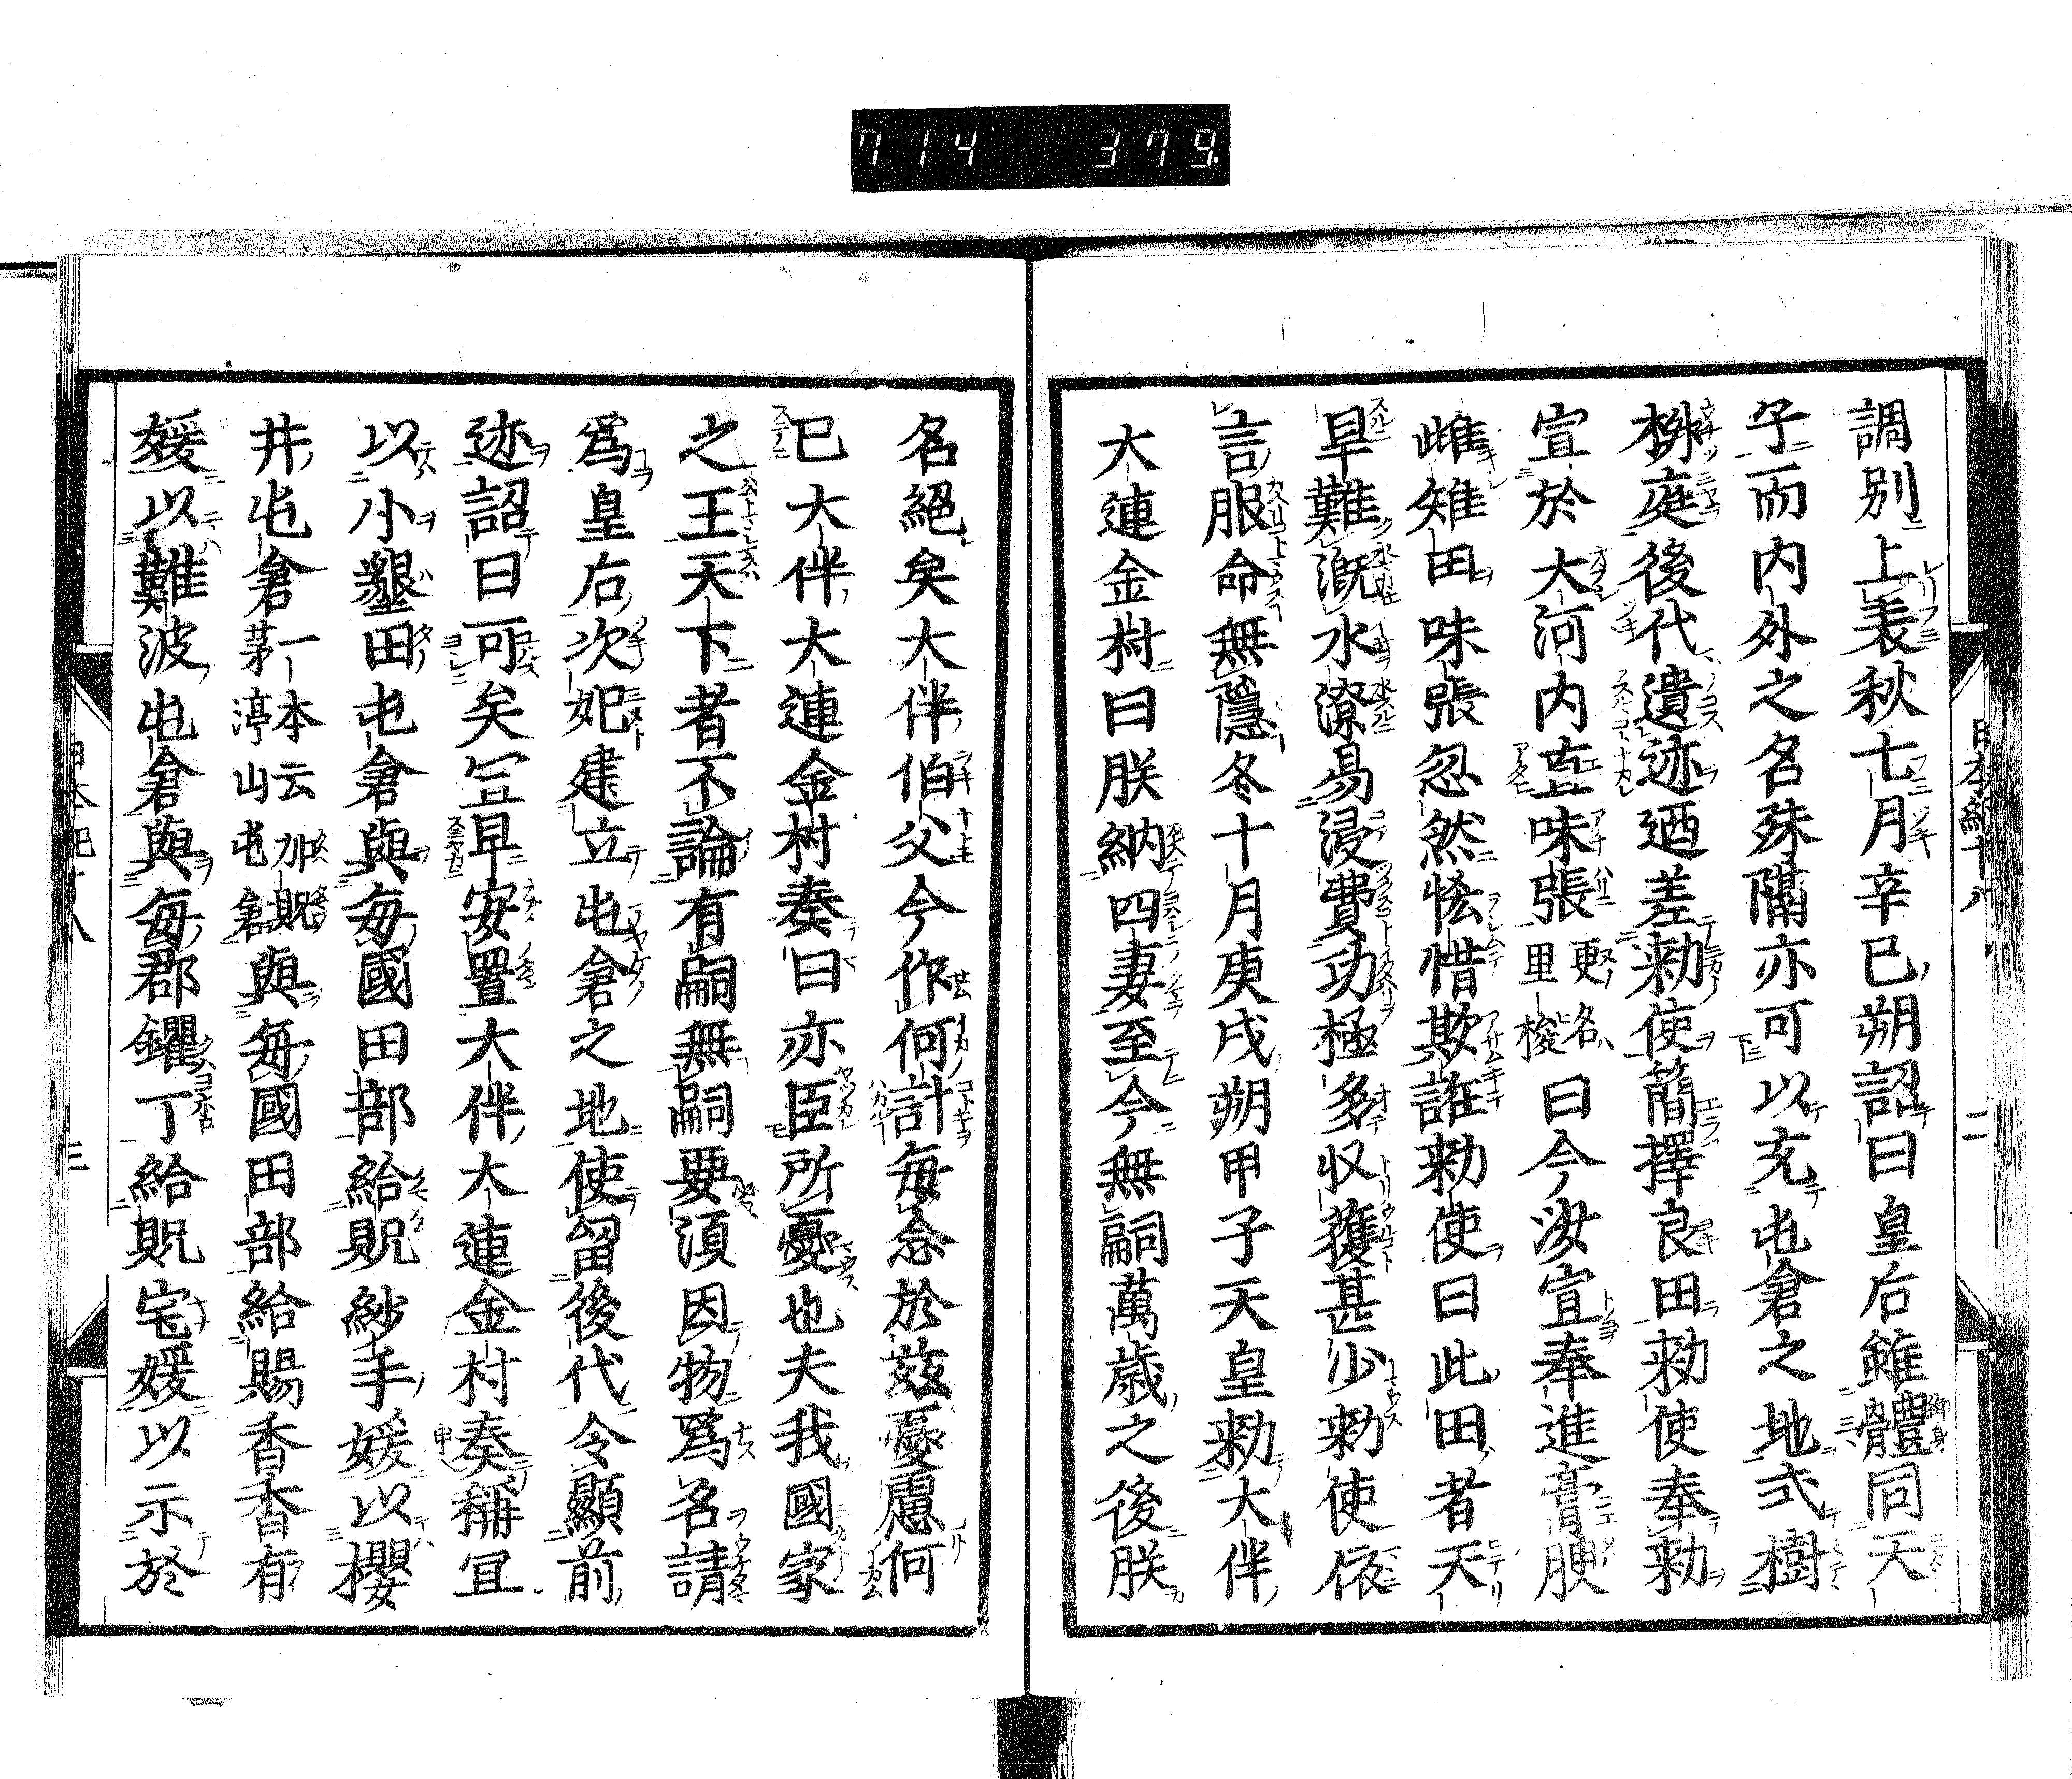 714 379
調別上表秋七月辛巳朔詔曰皇后雖體同天
子而內外之名殊隔亦可以充屯倉之地式樹
椒庭後代遺迹廼差勅使簡擇良田勅使奉勅
宣於大河內直味張更名里梭曰今汝宜奉進膏腴
雌雉田味張忽然悋惜欺誑勅使曰此田者天
旱難漑水潦易浸費功極多収獲甚少勅使依
言服命無隱冬十月庚戌朔甲子天皇勅大伴
大連金村曰朕納四妻至今無嗣萬歲之後朕
名絕矣大伴伯父今作何計每念於玆憂慮何
已大伴大連金村奏曰亦臣所憂也夫我國家
之王天下者不論有嗣無嗣要須因物爲名請
爲皇后次妃建立屯倉之地使留後代令顯前
迹詔曰可矣冝早安置大伴大連金村奏稱冝
以小墾田屯倉與每國田部給貺紗手媛以櫻
井屯倉一本云加貺茅渟山屯倉與每國田部給賜香香有
媛以難波屯倉與每郡钁丁給貺宅媛以示於